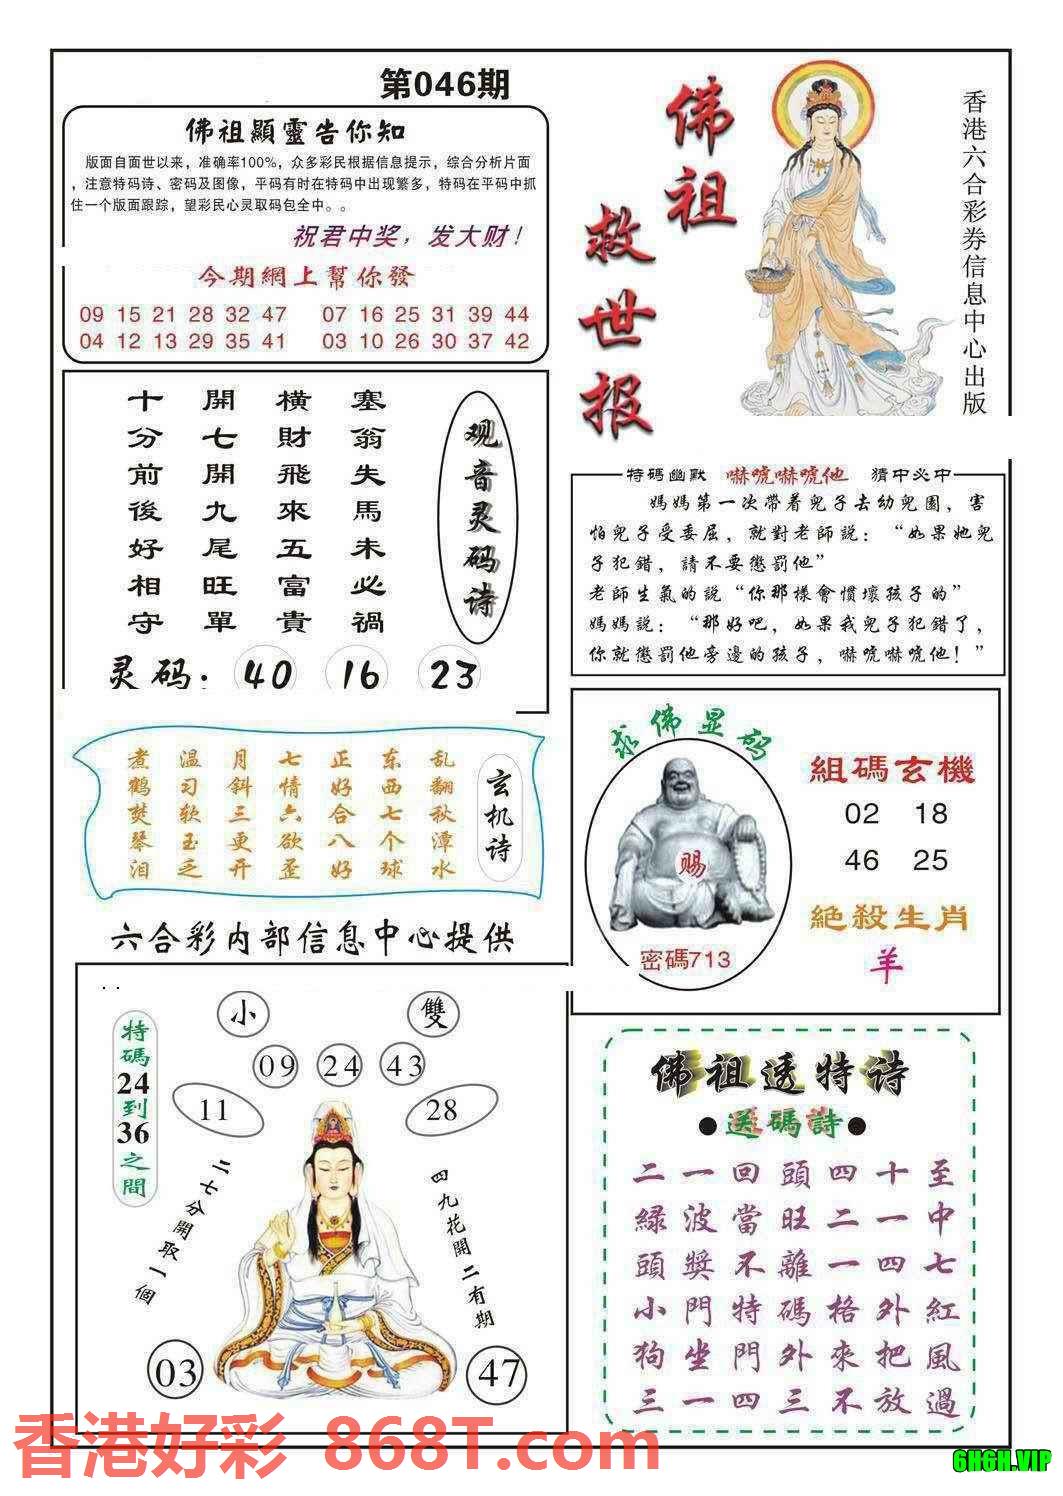 第046期
佛祖顯靈告你知
版面自面世以来，准确率100%，众多彩民根据信息提示，综合分析片面
，注意特码诗、密码及图像，平码有时在特码中出现繁多，特码在平码中抓
住一个版面跟踪，望彩民心灵取码包全中。。
祝君中奖，发大财！
今期網上幫你發
09 15 21 28 32 47 07 16 25 31 39 44
04 12 13 29 35 41 03 10 26 30 37 42
佛祖
救世报
香港六合彩券信息中心出版
观音灵码诗
塞翁失馬未必禍
橫財飛來五富貴
開七開九尾旺單
十分前後好相守
灵码：40 16 23
特碼幽默 嚇唬嚇唬他 猜中必中
媽媽第一次帶着兒子去幼兒園，害
怕兒子受委屈，就對老師説：“如果她兒
子犯錯，請不要懲罰他”
老師生氣的説“你那樣會慣壞孩子的”
媽媽説：“那好吧，如果我兒子犯錯了，
你就懲罰他旁邊的孩子，嚇唬嚇唬他！”
玄机诗
乱翻秋潭水
东西七个球
正好合八好
七情六欲歪
月斜三更开
温习软玉乏
煮鹤焚琴泪
求佛显码
赐
密碼713
組碼玄機
02 18
46 25
絕殺生肖
羊
六合彩内部信息中心提供
特碼24到36之間
小 雙
09 24 43
11 28
二七分開取一個
四九花開二有期
03 47
佛祖透特诗
●送碼詩●
二一回頭四十至
緑波當旺二一中
頭獎不離一四七
小門特碼格外紅
狗坐門外來把風
三一四三不放過
香港好彩 868T.com
6H6H.VIP